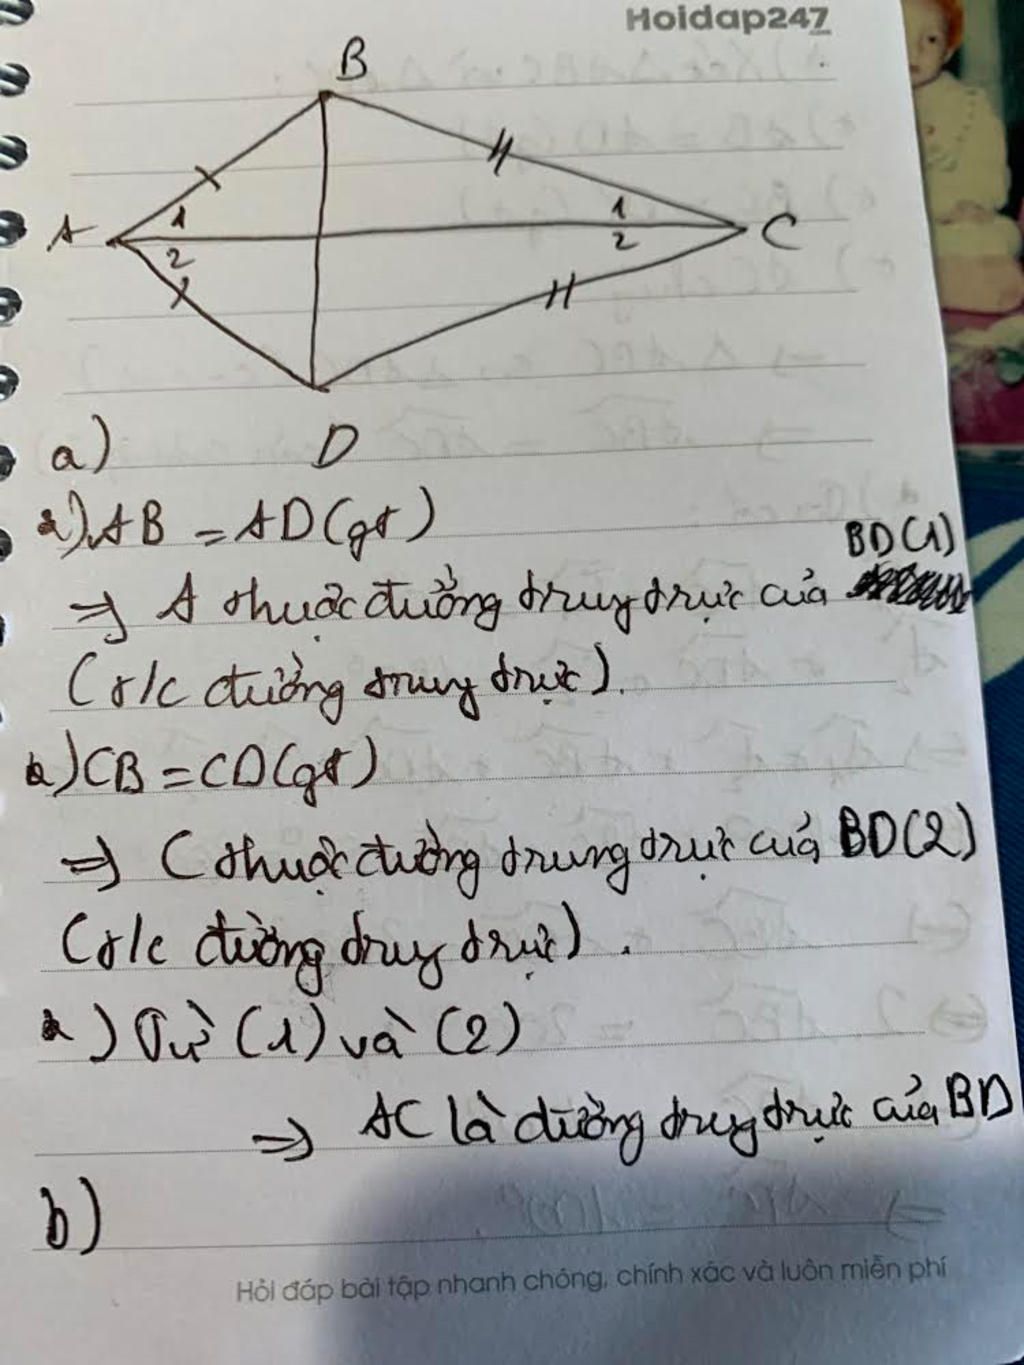 Hoidap247
B
A
1
2
1
2
C
D
a)
a) AB = AD (gt)
BD (1)
=> A thuộc đường trung trực của
(t/c đường trung trực).
a) CB = CD (gt)
=> C thuộc đường trung trực của BD (2)
(t/c đường trung trực).
a) Từ (1) và (2)
=> AC là đường trung trực của BD
b)
Hỏi đáp bài tập nhanh chóng, chính xác và luôn miễn phí